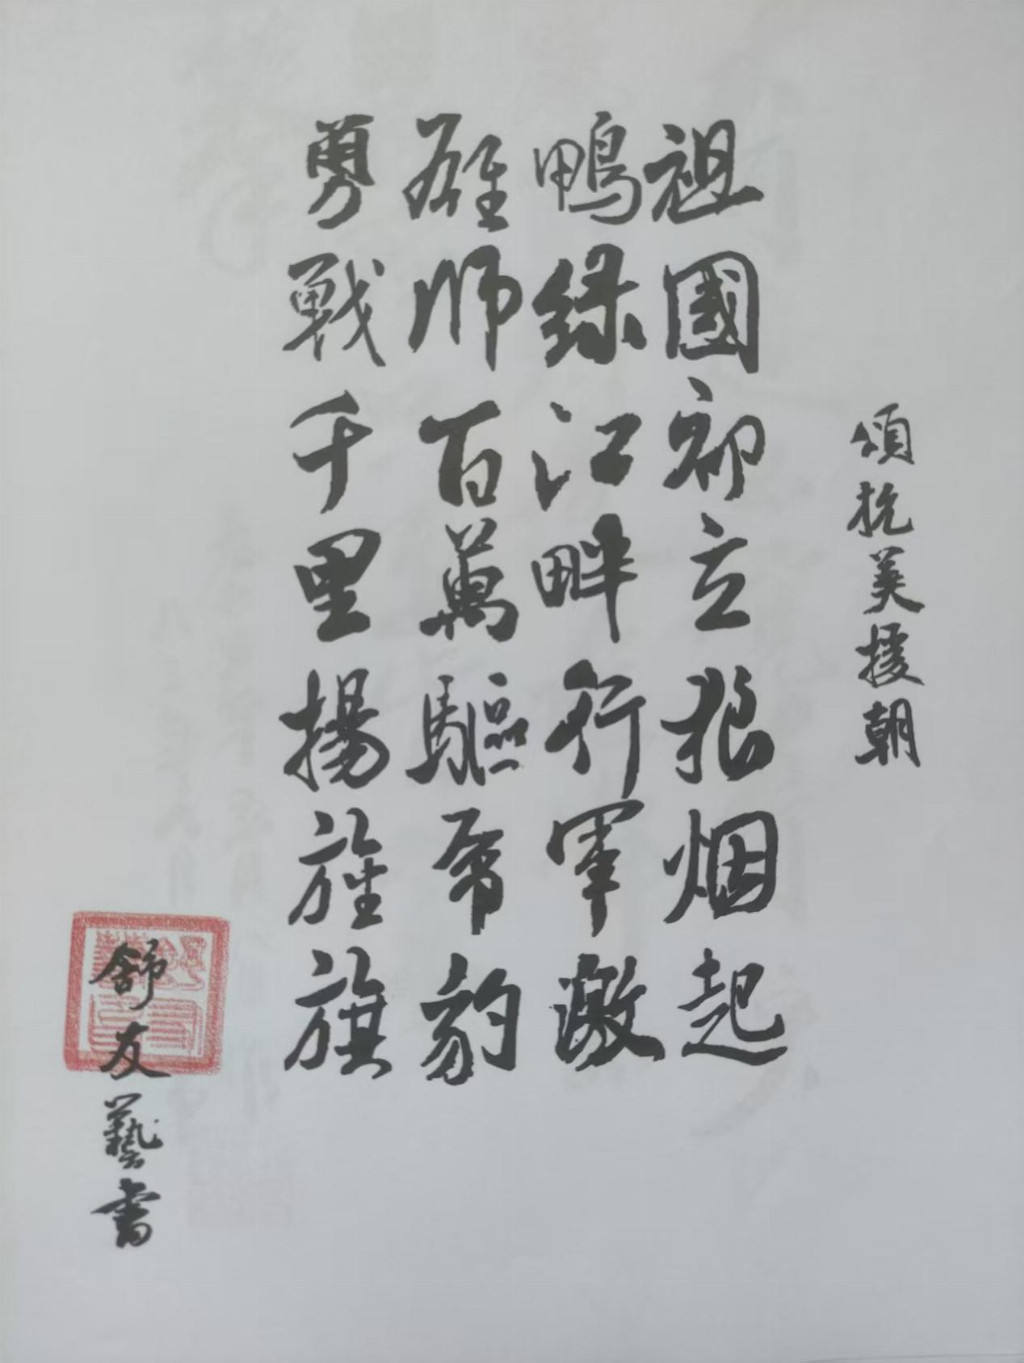 頌抗美援朝
祖國初立狼烟起
鴨緑江畔行軍激
雄師百萬驅虎豹
勇戰千里揚旌旗
舒友藝書